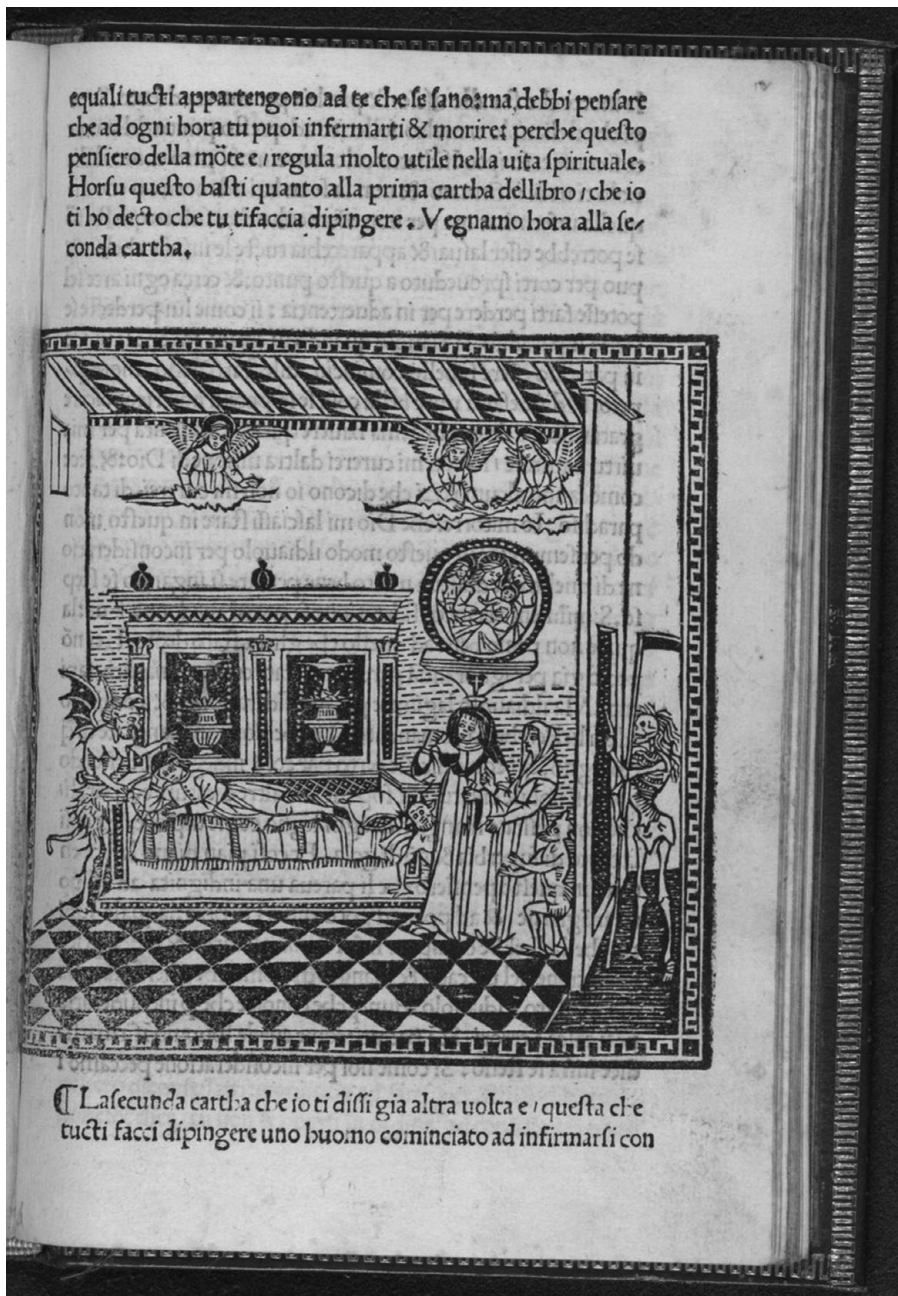 equali tucti appartengono ad te che se sano: ma debbi pensare
che ad ogni hora tu puoi infermarti & morire: perche questo
pensiero della mōte e / regula molto utile nella uita spirituale.
Horsu questo basti quanto alla prima cartha dellibro / che io
ti ho decto che tu tifaccia dipingere. Vegnamo hora alla se/
conda cartha.
¶ Lasecunda cartha che io ti dissi gia altra uolta e / questa che
tucti facci dipingere uno huomo cominciato ad infirmarsi con